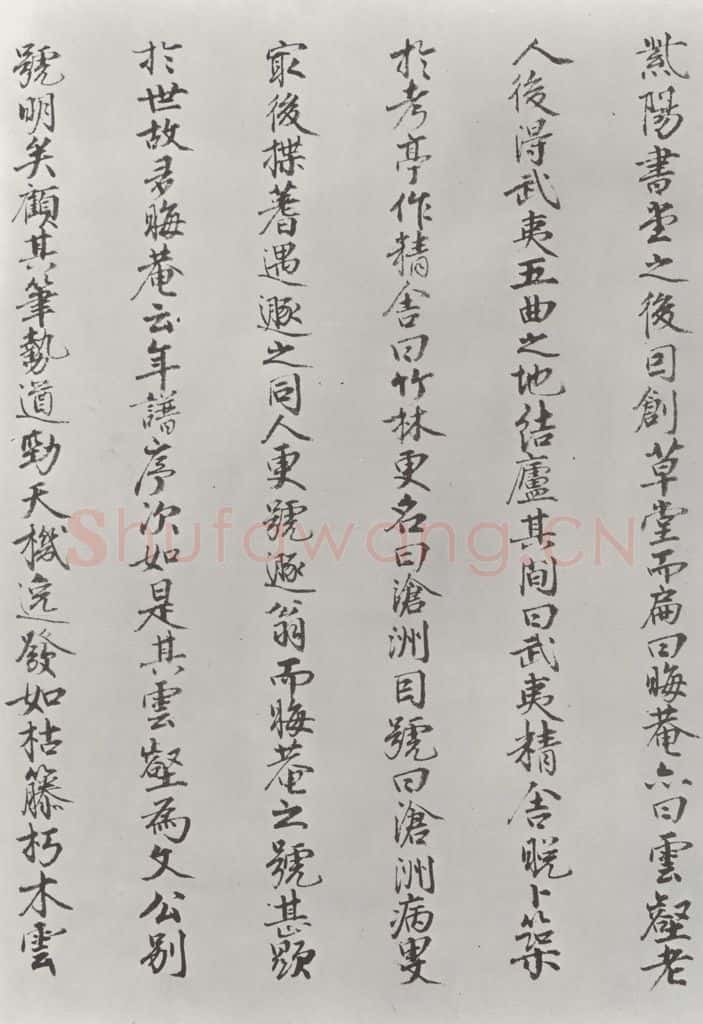 紫陽書堂之後因創草堂而扁曰晦菴亦曰雲壑老
人後得武夷五曲之地結廬其間曰武夷精舍晚卜築
於考亭作精舍曰竹林更名曰滄洲因號曰滄洲病叟
冣後揲蓍遇遯之同人更號遯翁而晦菴之號甚顯
於世故名晦菴云年譜序次如是其雲壑為文公别
號明矣顧其筆勢遒勁天機逸發如枯籐朽木雲
Shufawang.CN